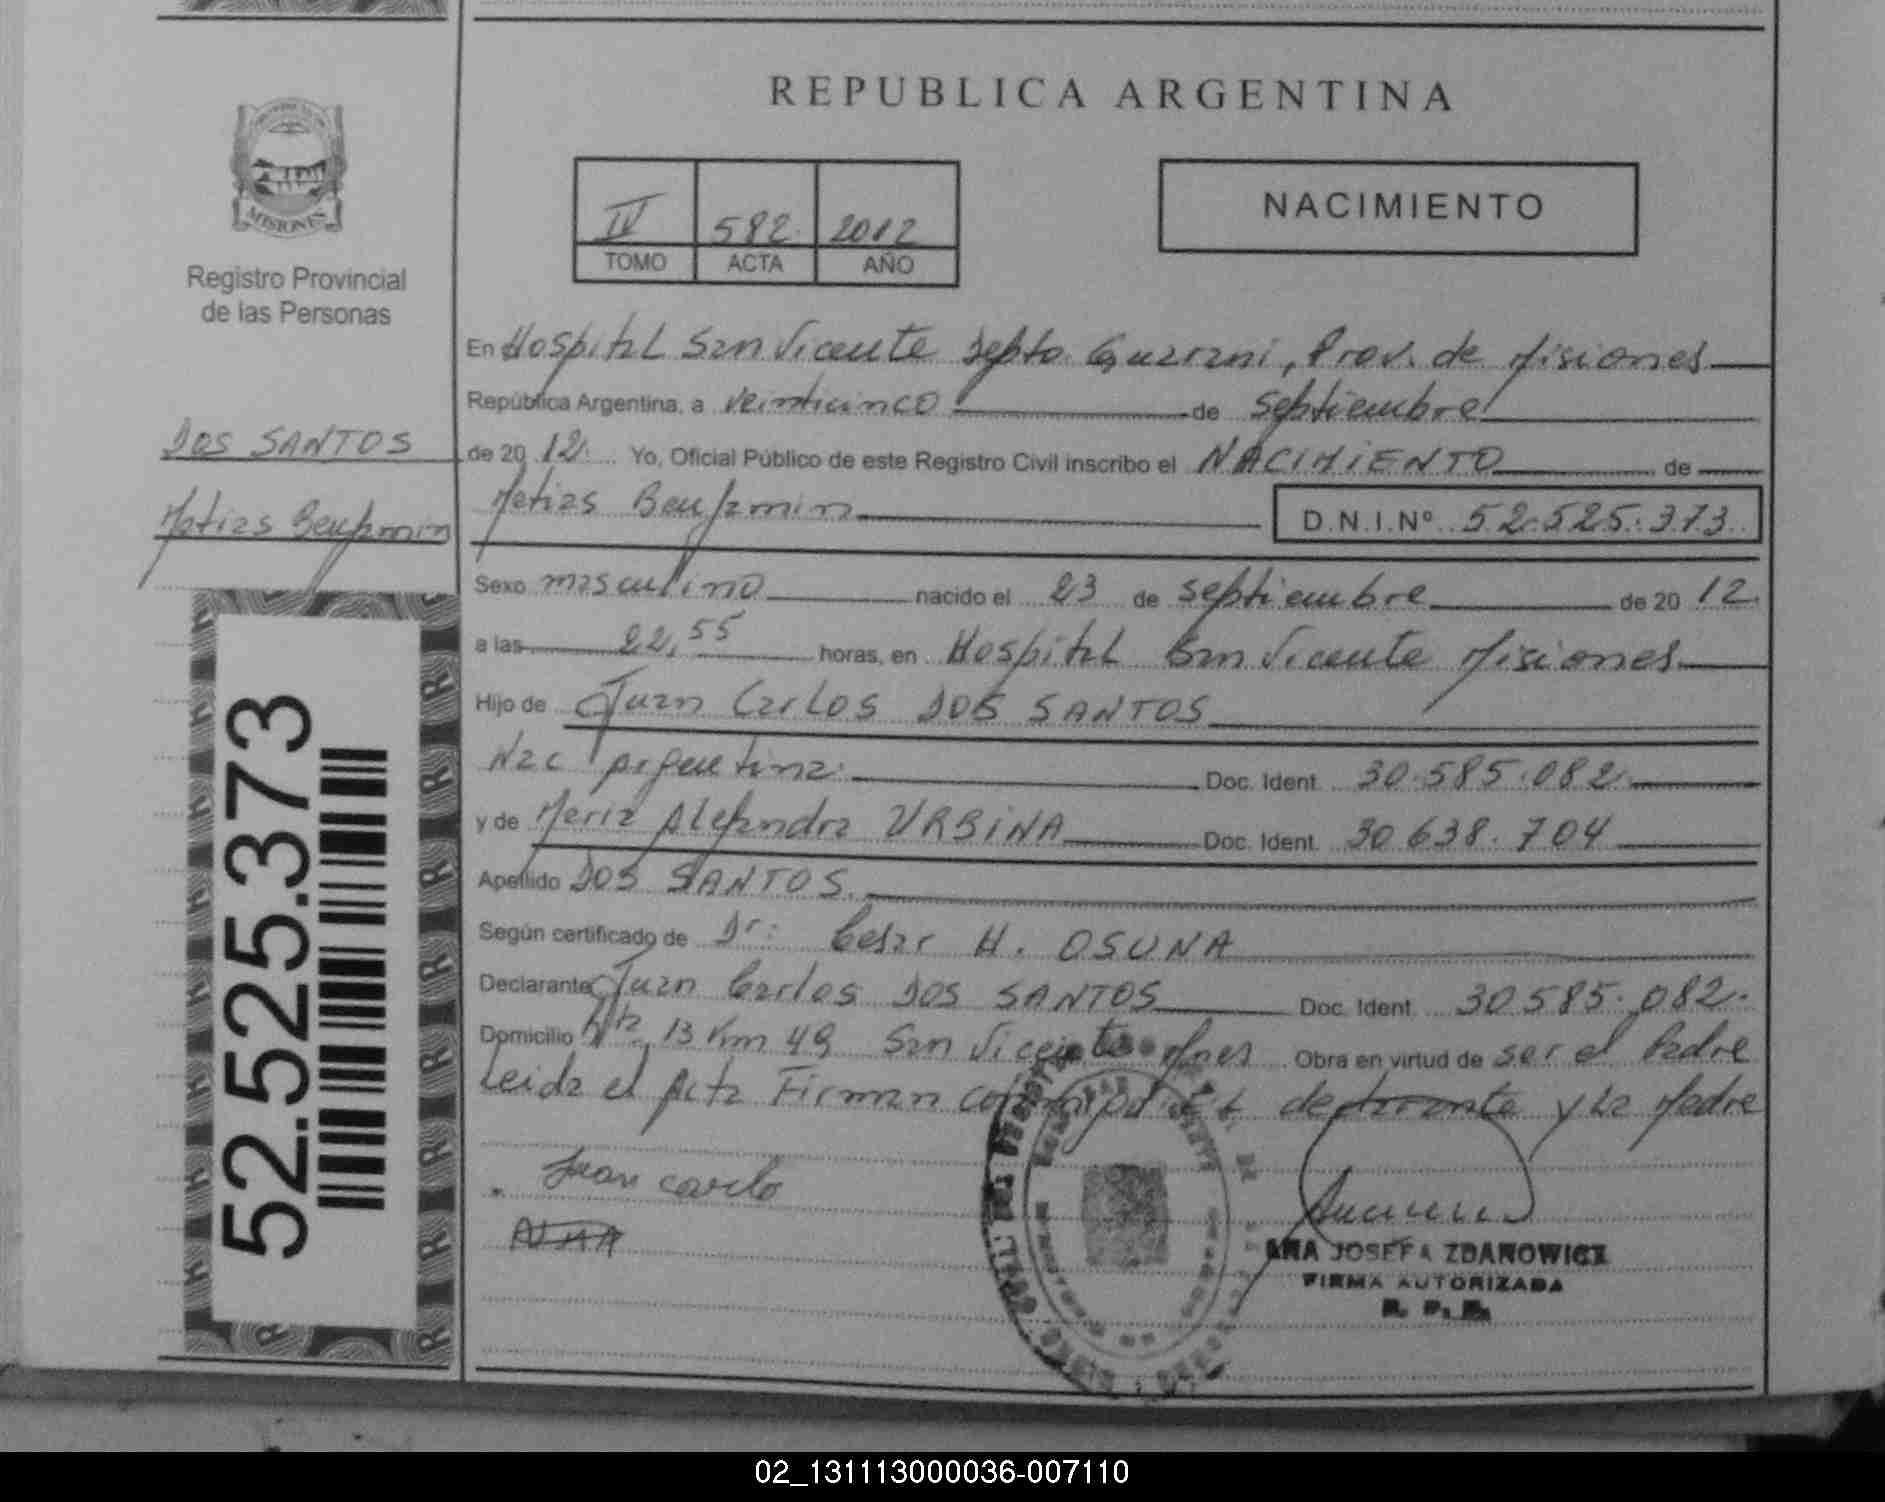 REPUBLICA ARGENTINA
MISIONES
Registro Provincial
de las Personas
IV 582 2012
TOMO ACTA AÑO
NACIMIENTO
En Hospital San Vicente Depto Guarani, Prov. de Misiones
República Argentina, a veinticinco de septiembre
DOS SANTOS
de 20 12 Yo, Oficial Público de este Registro Civil inscribo el NACIMIENTO de
Matias Benjamin
Matias Benjamin
D.N.I.Nº 52.525.373
Sexo masculino nacido el 23 de septiembre de 20 12.
a las 22,55 horas, en Hospital San Vicente Misiones
Hijo de Juan Carlos DOS SANTOS
Nac Argentina Doc. Ident. 30.585.082
y de Maria Alejandra URBINA Doc. Ident. 30.638.704
Apellido DOS SANTOS
Según certificado de Dr: Cesar H. OSUNA
Declarante Juan Carlos DOS SANTOS Doc. Ident. 30.585.082.
Domicilio Rta 13 Km 49 San Vicente Mnes Obra en virtud de ser el Padre
Leida el Acta Firman declarante y La Madre
Juan carlo
ANA JOSEFA ZDANOWICZ
FIRMA AUTORIZADA
R. P. P.
52.525.373
02_131113000036-007110